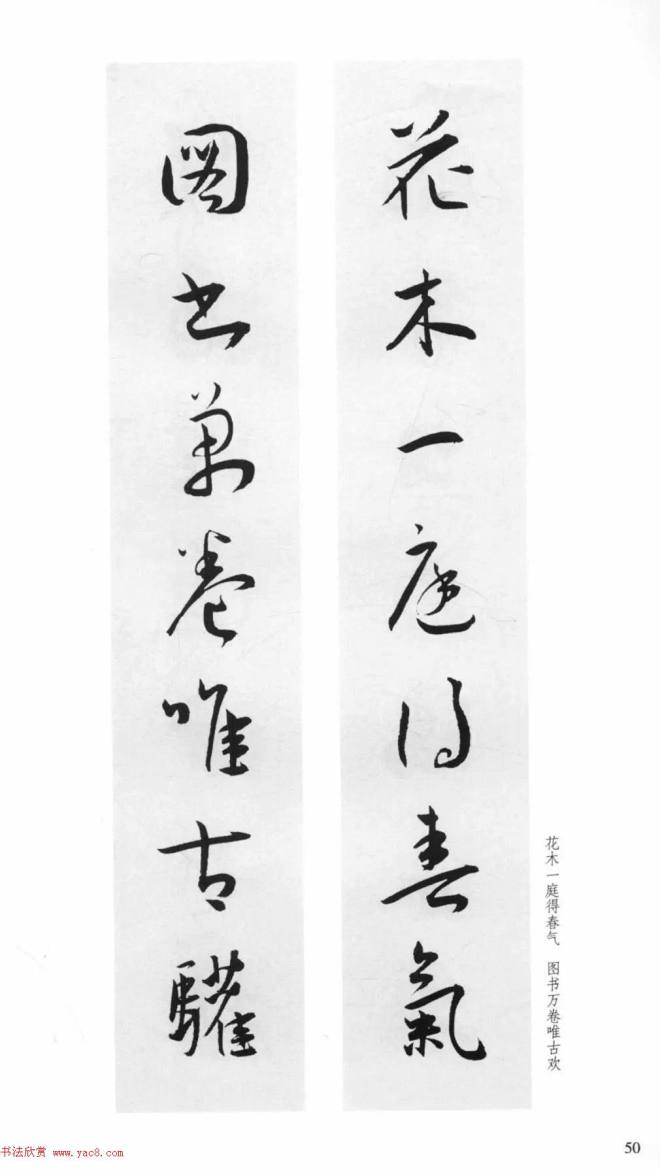 花木一庭得春氣
圖书萬卷唯古驩
花木一庭得春气 图书万卷唯古欢
书法欣赏 www.yac8.com
50